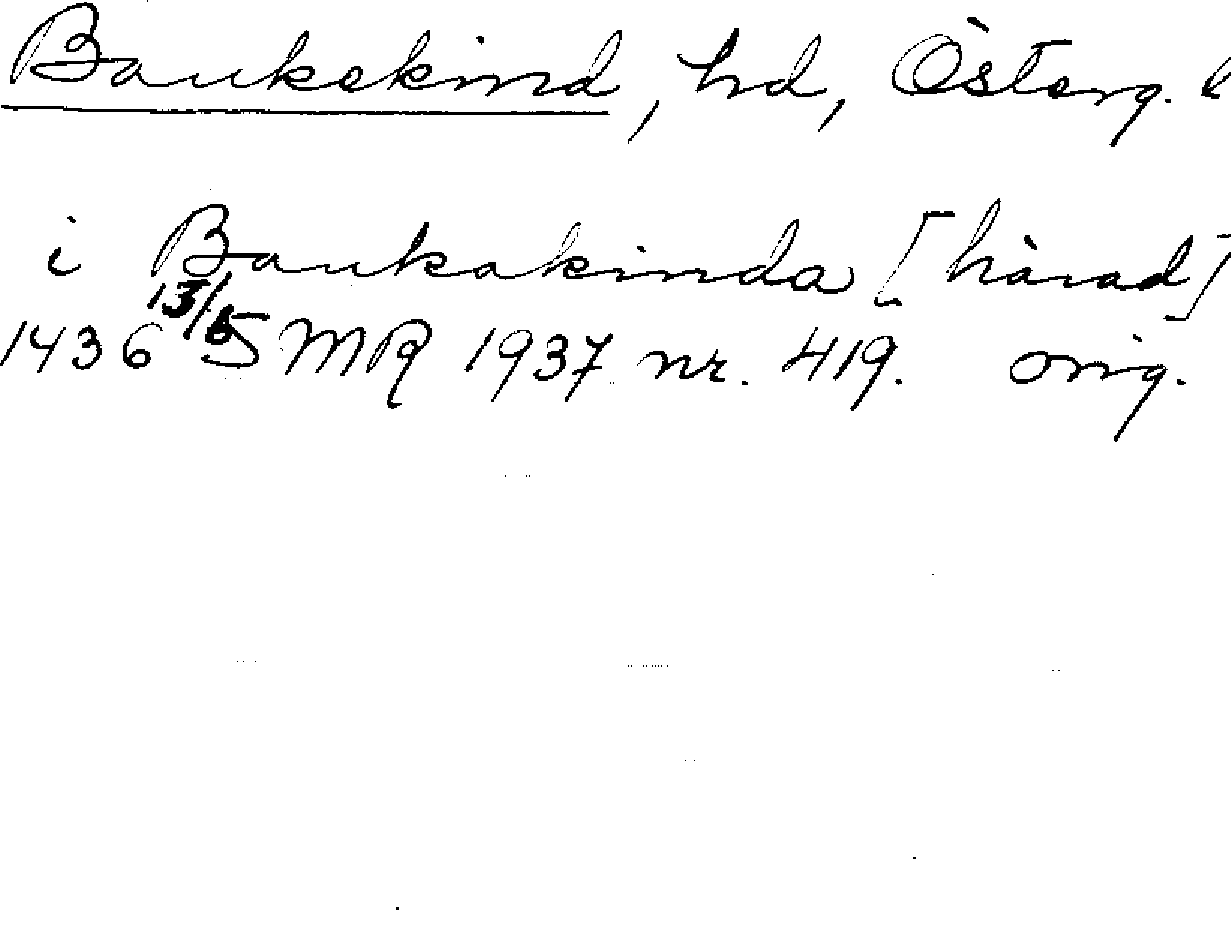 Baukekind, hd, Österg. l
i Baukakinda [härad]
1436 13/5 MR 1937 nr. 419. orig.